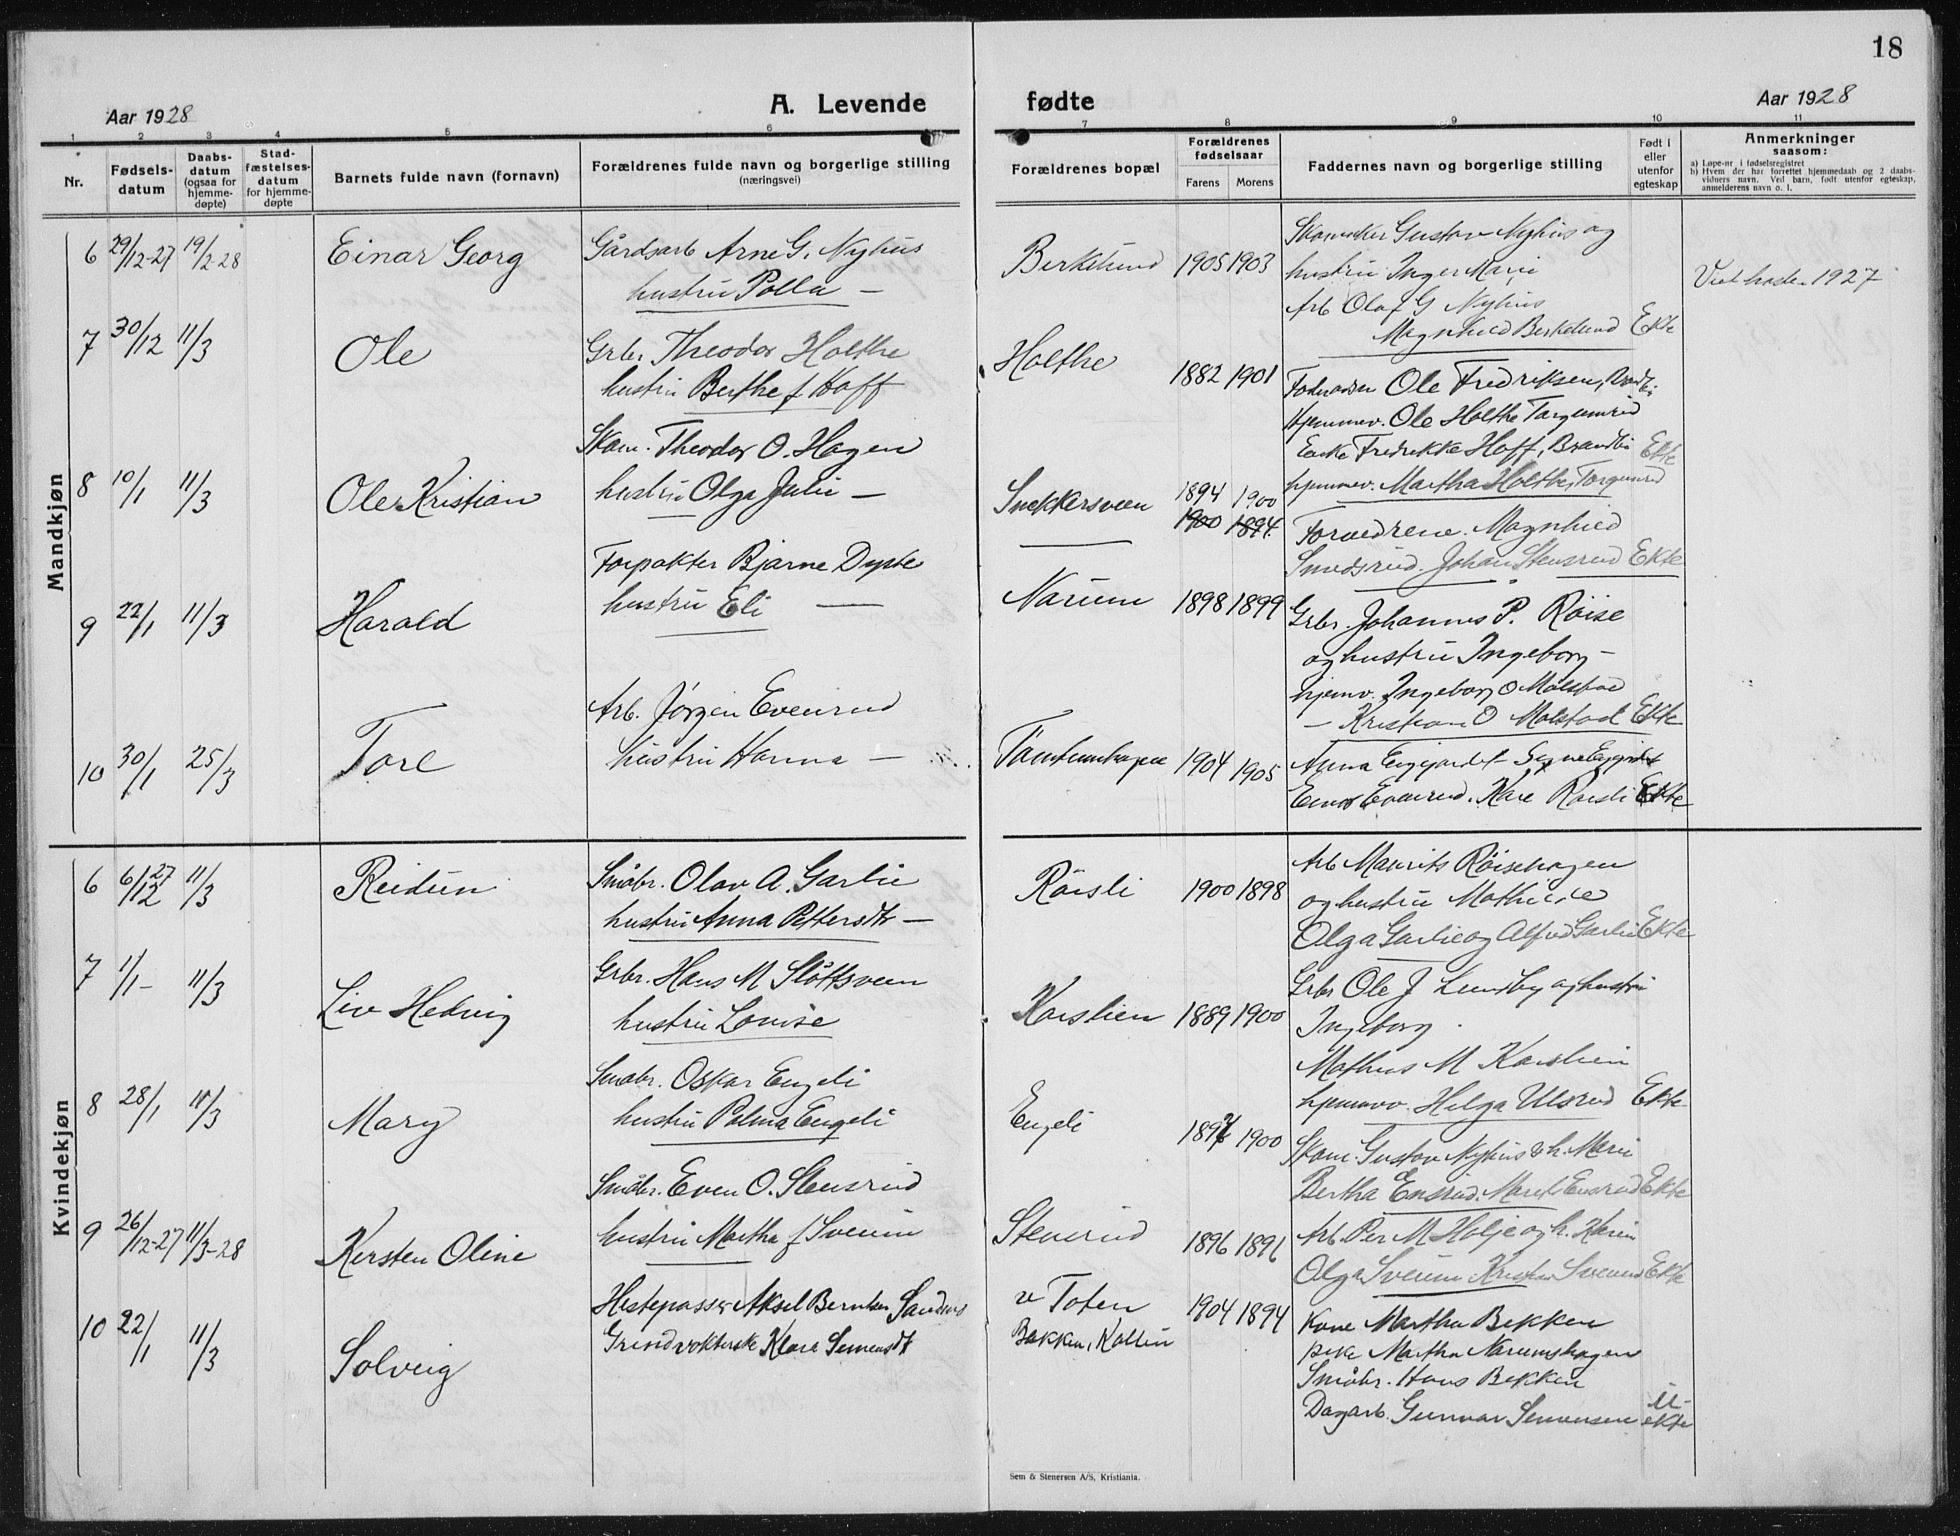 18
Aar 1928
A. Levende
fødte
Aar 1928
1 2 3 4 5 6 7 8 9 10 11
Nr.
Fødsels-
datum
Daabs-
datum
(ogsaa for
hjemme-
døpte)
Stad-
fæstelses-
datum
for hjemme-
døpte
Barnets fulde navn (fornavn)
Forældrenes fulde navn og borgerlige stilling
(næringsvei)
Forældrenes bopæl
Forældrenes
fødselsaar
Farens Morens
Faddernes navn og borgerlige stilling
Født i
eller
utenfor
egteskap
Anmerkninger
saasom:
a) Løpe-nr i fødselsregistret
b) Hvem der har forrettet hjemmedaab og 2 daabs-
vidners navn. Ved barn, født utenfor egteskap,
anmelderens navn o. l.
Mandkjøn
6 29/12-27 19/2-28 Einar Georg
Gårdsarb Arne G. Nyhus
hustru Polla —
Berkelund 1905 1903
Gustav Nyhus og
hustru Inger Marie
Arb Olaf G Nyhus
Magnhild Berkelund Ekte
1927
7 30/12 11/3 Ole
Grbr. Theodor Holthe
hustru Berthe f Hoff
Holthe 1882 1901
Ole Fredriksen,
Hjemmev. Ole Holthe
Enke Fredrikke Hoff, Brandbu Ekte
hjemmev. Martha Holthe,
8 10/1 11/3 Ole Kristian
Skom. Theodor O. Hagen
hustru Olga Julie —
Snekkersveen 1894 1900
1900 1894.
Forældrene. Magnhild
Smedsrud. Johan Stensrud Ekte
9 22/1 11/3 Harald
Forpakter Bjarne Dyste
hustru Eli —
Narum 1898 1899
Grbr. Johannes P. Røise
og hustru Ingeborg —
hjemv. Ingeborg O Mølstad
— Kristian O Mølstad Ekte
10 30/1 25/3 Tore
Arb. Jørgen Evenrud
hustru Hanna —
1904 1905
Anna Signe
Einar Evenrud. Kåre Røisli Ekte
Kvindekjøn
6 6/12 27 11/3 Reidun
Småbr. Olav A. Garlie
hustru Anna Pettersdtr —
Røisli 1900 1898
Arb Maurits Røisehagen
og hustru Mathilde
Olga Garlie og Alfred Garlie Ekte
7 1/1- 11/3 Liv Hedvig
Grbr. Hans M Slåttsveen
hustru Lovise
Korslien 1889 1900
Grbr Ole J Lundby og hustru
Ingeborg
Mathus M Korslien
hjemmev. Helga Ulsrud Ekte
8 28/1 11/3 Mary
Småbr. Oskar Engeli
hustru Palma Engeli
Engeli 1900
Skom. Gustav Nyhus & h. Marie
Bertha Ensrud. Ensrud Ekte
9 26/12-27 11/3-28 Kersten Oline
Småbr. Even O. Stensrud
hustru Martha f Sveum
Stensrud 1896 1896
Arb. Per M Holje og h. Karen
Olga Sveum Kristian Sveum Ekte
10 22/1 11/3 Solveig
Hestepasser Aksel Berntsen Sandnes
Grindvokterske Klara Simensdt
v Toten
Bakken, Kolbu
1904 1894
Kone Martha Bekken
pike Martha Narumshagen
Småbr. Hans Bekken
Dagarb. Gunnar Simensen U-
ekte
Sem & Stenersen A/S, Kristiania.